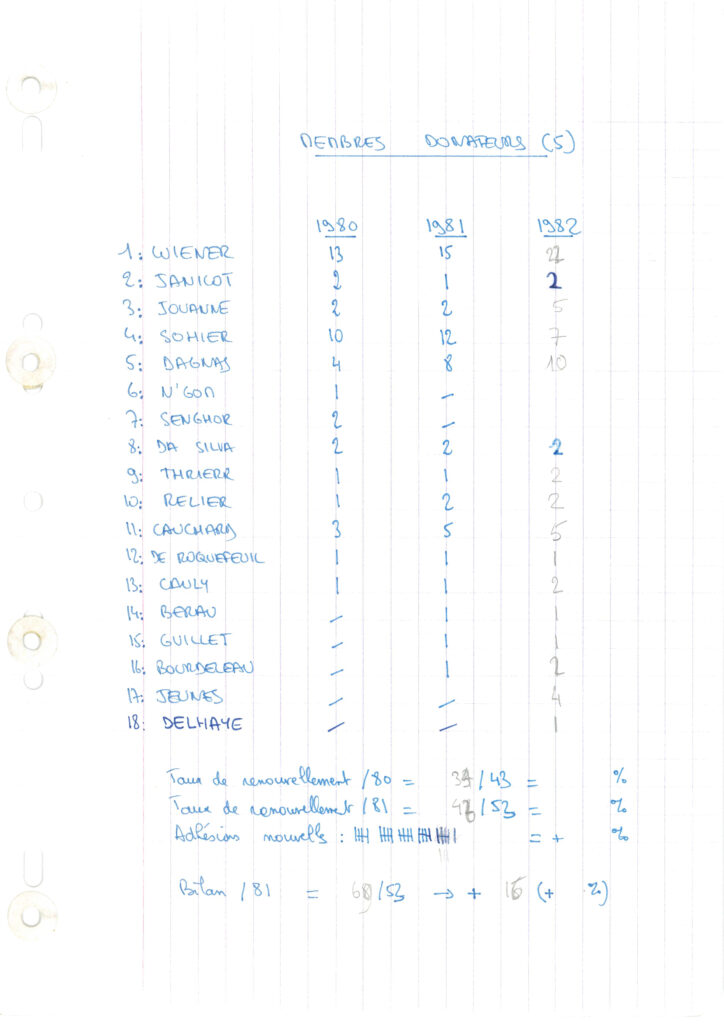 MEMBRES DONATEURS (5)
1980 1981 1982
1: WIENER 13 15
2: JANICOT 2 1 2
3: JOUANNE 2 2 5
4: SOHIER 10 12 7
5: DAGNAS 4 8 10
6: N'GOM 1 –
7: SENGHOR 2 –
8: DA SILVA 2 2 2
9: THRIERR 1 1 2
10: RELIER 1 2 2
11: CAUCHARD 3 5 5
12: DE ROQUEFEUIL 1 1 1
13: CAULY 1 1 2
14: BERAU – 1 1
15: GUILLET – 1 1
16: BOURDELEAU – 1 2
17: JEUNES – – 4
18: DELHAYE – – 1
Taux de renouvellement /80 = /43 = %
Taux de renouvellement /81 = /53 = %
Adhésions nouvells : = + %
Bilan /81 = /53 → + (+ %)